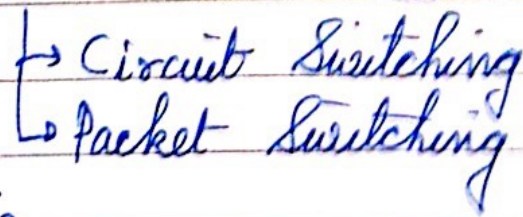 → Circuit Switching
→ Packet Switching